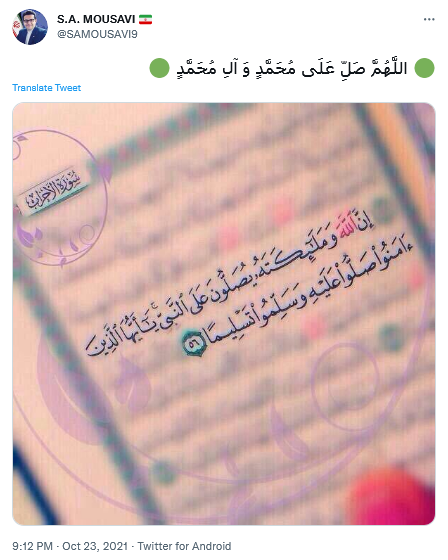 S.A. MOUSAVI 🇮🇷
@SAMOUSAVI9
🟢 اللَّهُمَّ صَلِّ عَلَى مُحَمَّدٍ وَ آلِ مُحَمَّدٍ 🟢
Translate Tweet
سورة الاحزاب
إِنَّ ٱللَّهَ وَمَلَٰٓئِكَتَهُۥ يُصَلُّونَ عَلَى ٱلنَّبِىِّ يَٰٓأَيُّهَا ٱلَّذِينَ
ءَامَنُوا۟ صَلُّوا۟ عَلَيْهِ وَسَلِّمُوا۟ تَسْلِيمًا ٥٦
9:12 PM · Oct 23, 2021 · Twitter for Android